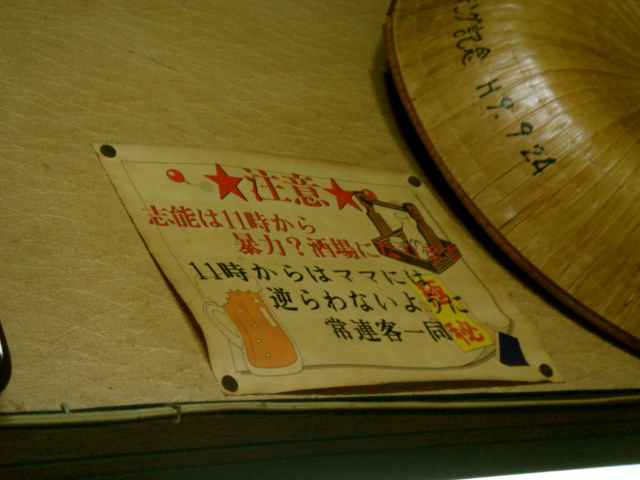 ★注意★
志能は11時から
暴力?酒場に
11時からはママには
逆らわないように
常連客一同
極秘
記念
H9.9.24